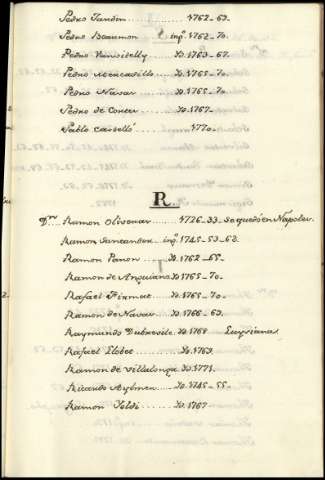 Pedro Jardin ........ 1762-63.
Pedro Beaumon ... ing.º 1762-70.
Pedro ........ Yd. 1763-67.
Pedro Moncadillo .... Yd. 1765-70.
Pedro Navar ........ Yd. 1765-70.
Pedro de ........ Yd. 1767-
Pablo ........ 1770.
R.
Dn. Ramon Olivenar ....... 1726-33. Se quedó en Napoles.
Ramon Santander. ing.º 1745-53-63.
Ramon Panon ..... Yd. 1762-65-
Ramon de Anguiano Yd. 1765-70.
Rafael ........ Yd. 1765-70.
Ramon de Navas ... Yd. 1766-69.
Raymundo Dubrevile. Yd. 1768 Luysiana
Rafael Llobet .... Yd. 1769.
Ramon de Villalonga Yd. 1771.
Ricardo Aylmer ... Yd. 1745-55.
Ramon ........ Yd. 1767